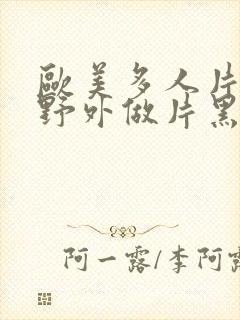 歐美多人片
野外做片黑
阿一露/李阿露